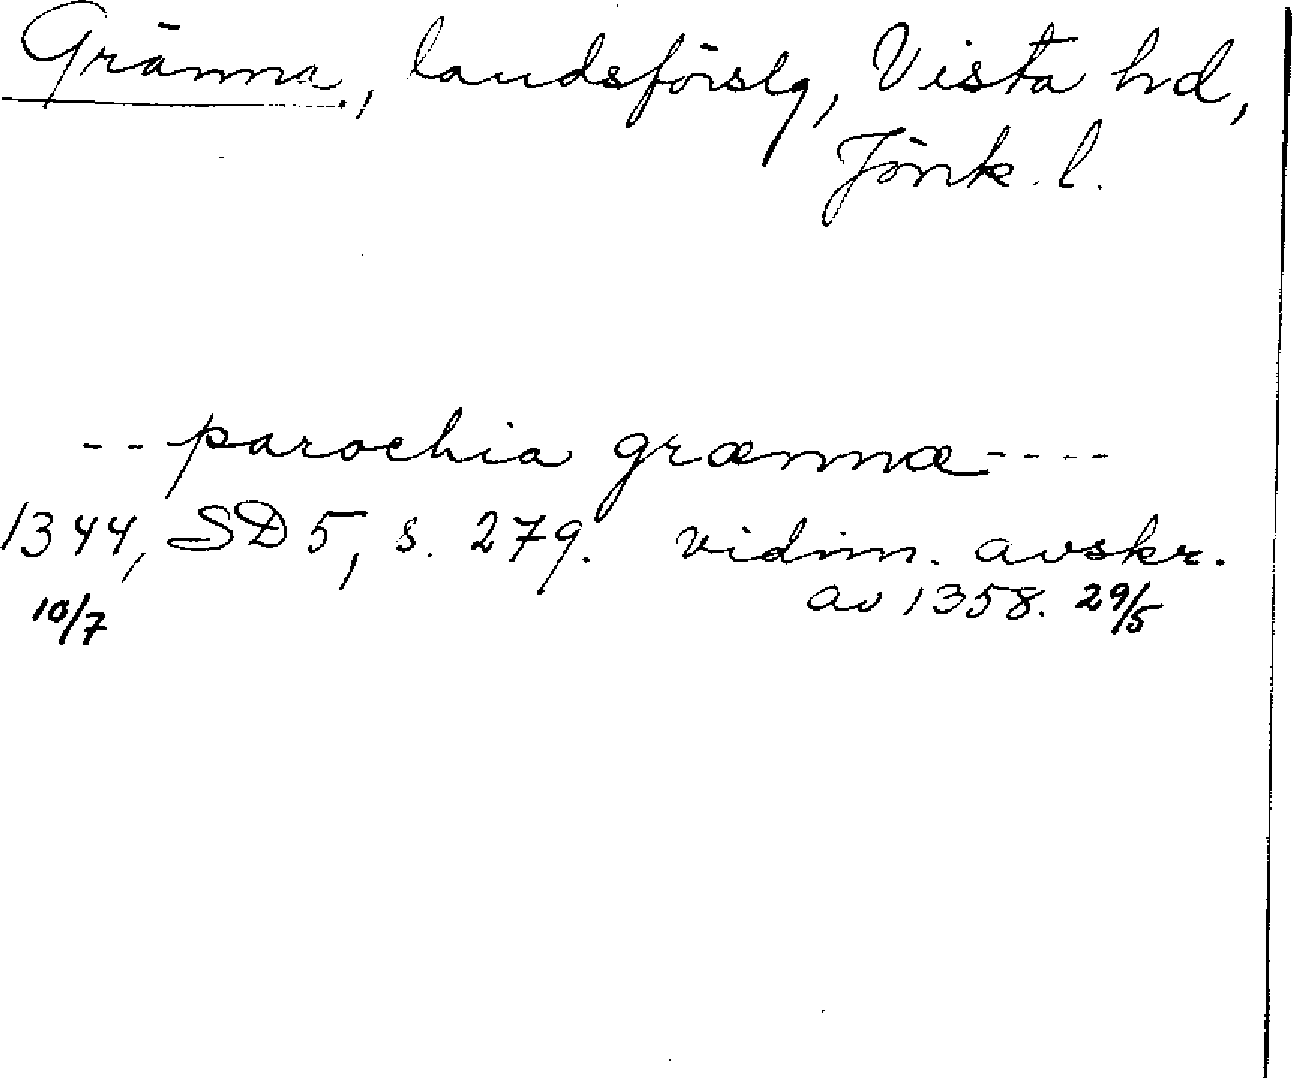 Gränna, landsförslg, Vista hd,
Jönk. l.
-- parochia grænnæ ----
1344, SD 5, s. 279. vidim. avskr.
10/7 av 1358. 29/5